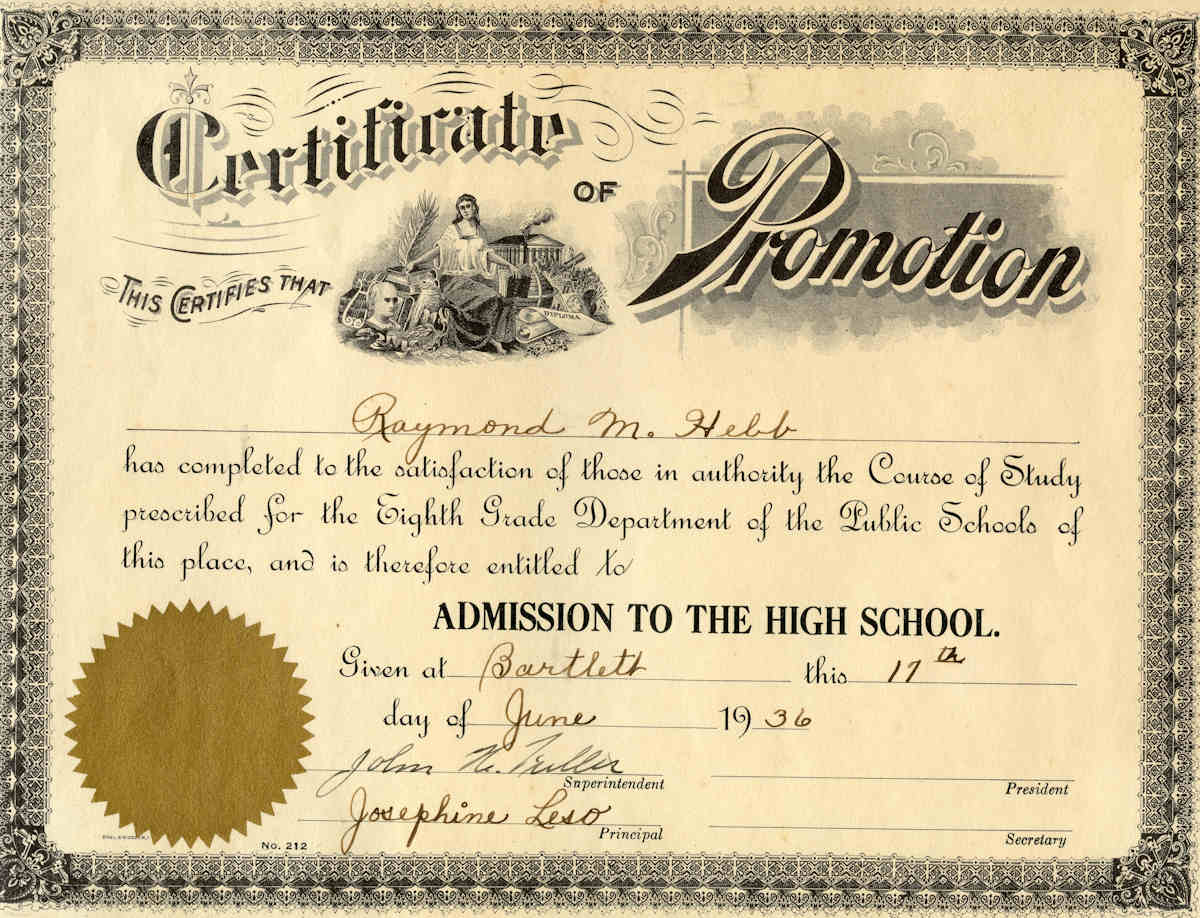 Certificate
OF
Promotion
THIS CERTIFIES THAT
DIPLOMA
Raymond M. Hebb
has completed to the satisfaction of those in authority the Course of Study
prescribed for the Eighth Grade Department of the Public Schools of
this place, and is therefore entitled to
ADMISSION TO THE HIGH SCHOOL.
Given at Bartlett this 17th
day of June 1936
John W. Fuller
Superintendent
President
Josephine Leso
Principal
Secretary
No. 212